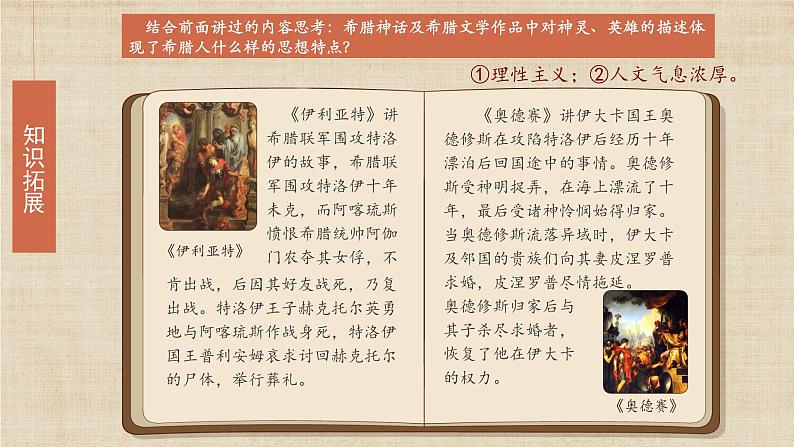 结合前面讲过的内容思考：希腊神话及希腊文学作品中对神灵、英雄的描述体
现了希腊人什么样的思想特点？
①理性主义；②人文气息浓厚。
知识拓展
《伊利亚特》讲
希腊联军围攻特洛
伊的故事，希腊联
军围攻特洛伊十年
未克，而阿喀琉斯
愤恨希腊统帅阿伽
门农夺其女俘，不
肯出战，后因其好友战死，乃复
出战。特洛伊王子赫克托尔英勇
地与阿喀琉斯作战身死，特洛伊
国王普利安姆哀求讨回赫克托尔
的尸体，举行葬礼。
《伊利亚特》
《奥德赛》讲伊大卡国王奥
德修斯在攻陷特洛伊后经历十年
漂泊后回国途中的事情。奥德修
斯受神明捉弄，在海上漂流了十
年，最后受诸神怜悯始得归家。
当奥德修斯流落异域时，伊大卡
及邻国的贵族们向其妻皮涅罗普
求婚，皮涅罗普尽情拖延。
奥德修斯归家后与
其子杀尽求婚者，
恢复了他在伊大卡
的权力。
《奥德赛》